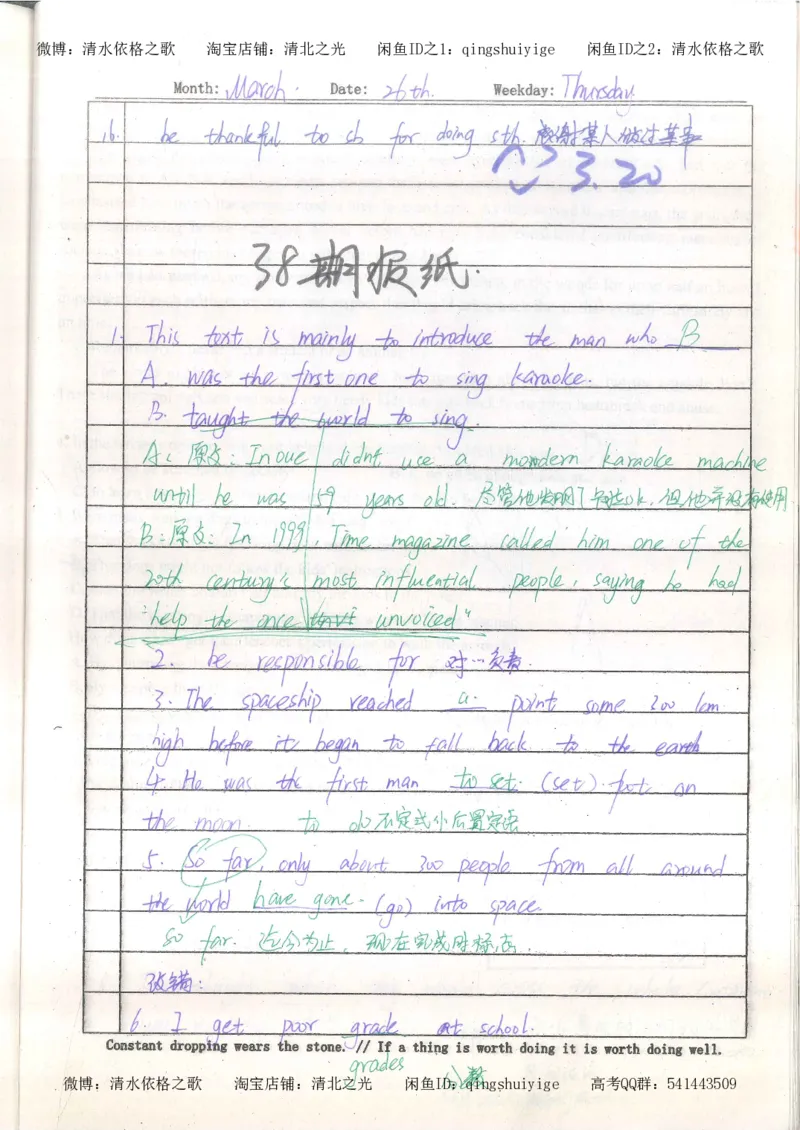 微博：清水依格之歌 淘宝店铺：清北之光 闲鱼ID之1：qingshuiyige 闲鱼ID之2：清水依格之歌
Month: March. Date: 26th. Weekday: Thursday
16. be thankful to sb for doing sth. 感谢某人做过某事
3.20
38期报纸.
1. This text is mainly to introduce the man who B
A. was the first one to sing karaoke.
B. taught the world to sing.
A: 原文: Inoue didn't use a mondern karaoke machine
until he was 59 years old. 尽管他发明了卡拉ok, 但他并没有使用
B: 原文: In 1999, Time magazine called him one of the
20th century's most influential people, saying he had
"help the once unvoiced"
2. be responsible for 对…负责.
3. The spaceship reached a. point some 200 km
high before it began to fall back to the earth
4. He was the first man to set. (set). foot on
the moon. to do 不定式作后置定语
5. So far, only about 300 people from all around
the world have gone. (go) into space.
so far. 迄今为止, 现在完成时标志.
改错:
6. I get poor grade at school.
Constant dropping wears the stone. // If a thing is worth doing it is worth doing well.
grades
微博：清水依格之歌 淘宝店铺：清北之光 闲鱼ID：qingshuiyige 高考QQ群：541443509